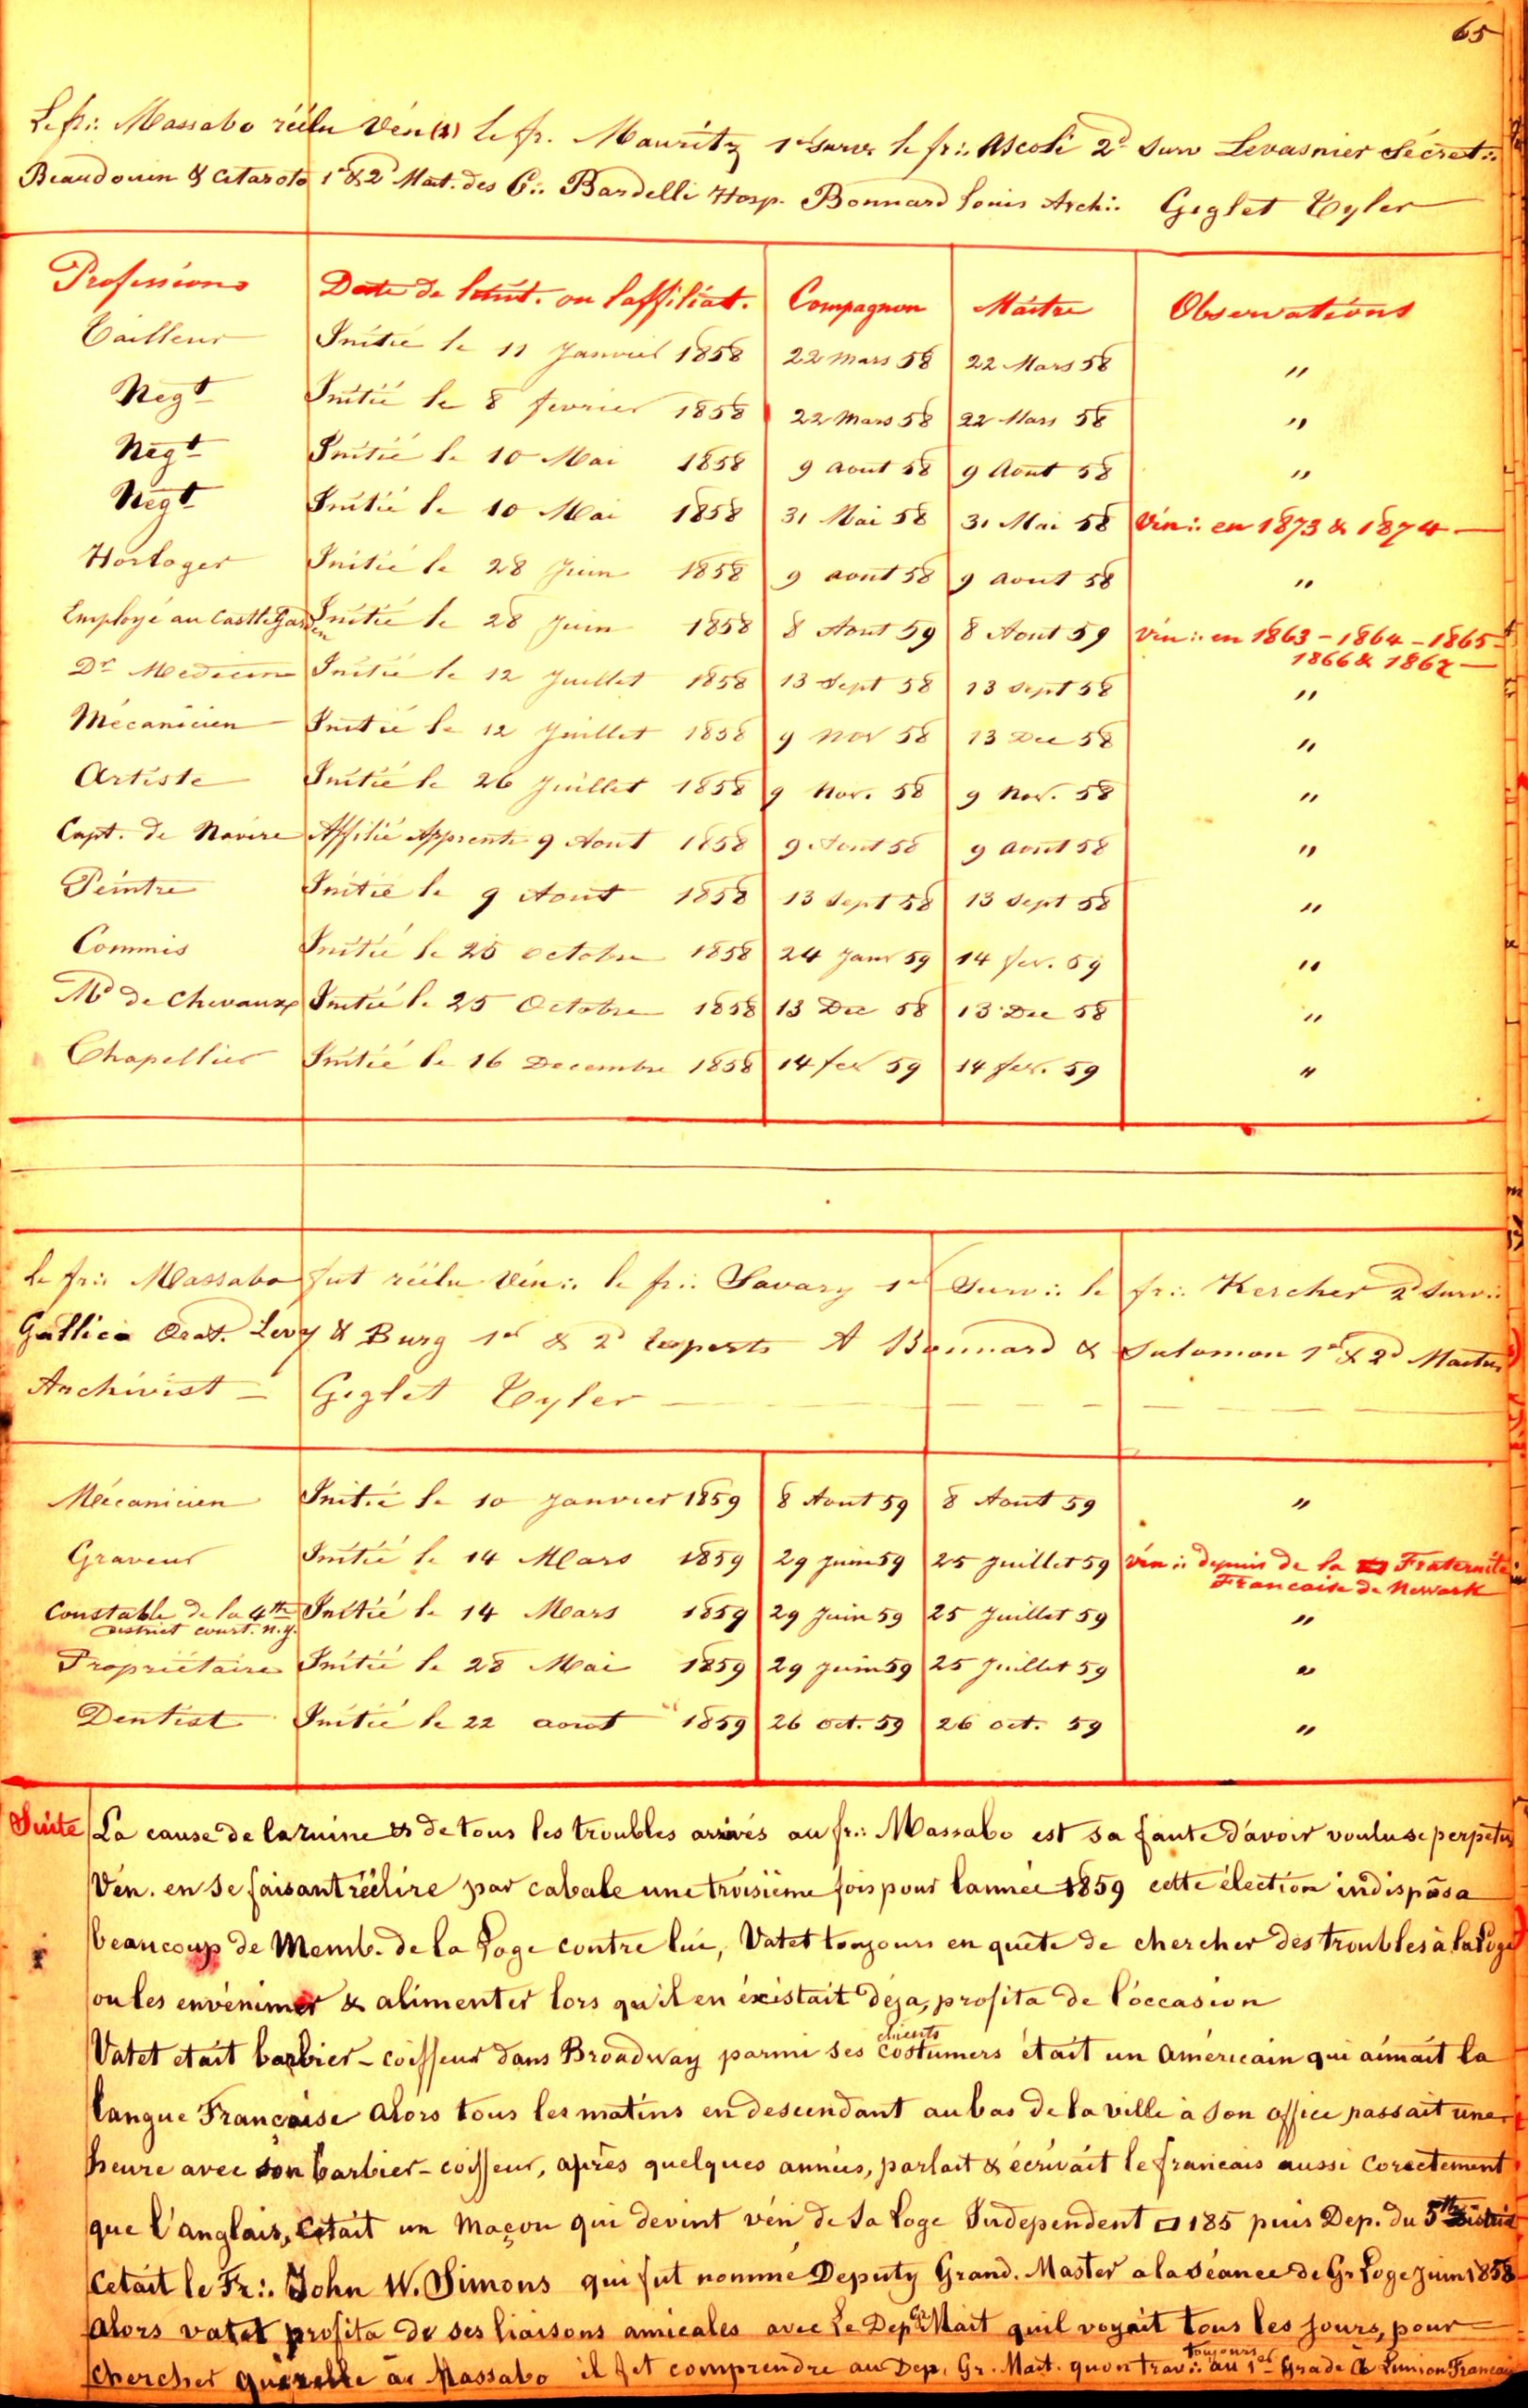 65
Le fr∴ Massabo réélu Vén (2) Le fr. Mauritz 1er Surv. le fr∴ Ascoli 2d Surv Levasnier Sécret∴
Beaudouin & Cataroto 1er & 2d Mait. des C∴ Bardelli Hosp. Bonnard Louis Archi∴ Geglet Tyler
Professions Date de l'init. ou l'affiliat. Compagnon Maitre Observations
Tailleur Initié le 11 Janvier 1858 22 Mars 58 22 Mars 58 "
Negt Initié le 8 fevrier 1858 22 Mars 58 22 Mars 58 "
Negt Initié le 10 Mai 1858 9 Aout 58 9 Aout 58 "
Negt Initié le 10 Mai 1858 31 Mai 58 31 Mai 58 Vén∴ en 1873 & 1874
Horloger Initié le 28 Juin 1858 9 aout 58 9 aout 58 "
Employé au Castle Garden Initié le 28 Juin 1858 8 Aout 59 8 Aout 59 Vén∴ en 1863 - 1864 - 1865
1866 & 1867
Dr Medicine Initié le 12 Juillet 1858 13 Sept 58 13 Sept 58 "
Mécanicien Initié le 12 Juillet 1858 9 Nov 58 13 Dec 58 "
Artiste Initié le 26 Juillet 1858 9 Nov. 58 9 Nov. 58 "
Capt. de Navire Affilié Apprenti 9 Aout 1858 9 Aout 58 9 Aout 58 "
Peintre Initié le 9 Aout 1858 13 Sept 58 13 Sept 58 "
Commis Initié le 25 Octobre 1858 24 Janv 59 14 fev. 59 "
Md de Chevaux Initié le 25 Octobre 1858 13 Dec 58 13 Dec 58 "
Chapellier Initié le 16 Decembre 1858 14 fev 59 14 fev. 59 "
Le fr∴ Massabo fut réélu Vén∴ le fr∴ Savary 1er Surv∴ le fr∴ Kercher 2d Surv∴
Gallico Orat. Levy & Burg 1er & 2d Experts A Bonnard & Salomon 1er & 2d Maitres
Archivist - Geglet Tyler
Mécanicien Initié le 10 Janvier 1859 8 Aout 59 8 Aout 59 "
Graveur Initié le 14 Mars 1859 29 Juin 59 25 Juillet 59 Vén∴ depuis de la ▭ Fraternité
Francaise de Newark
Constable de la 4th Initié le 14 Mars 1859 29 Juin 59 25 Juillet 59 "
District court. n.y.
Propriétaire Initié le 28 Mai 1859 29 Juin 59 25 Juillet 59 "
Dentist Initié le 22 aout 1859 26 oct. 59 26 oct. 59 "
Suite La cause de la ruine & de tous les troubles arrivés au fr∴ Massabo est sa faute d'avoir voulu se perpétu
Vén. en se faisant réélire par cabale une troisième fois pour l'année 1859 cette élection indisposa
beaucoup de Memb. de la Loge contre lui, Vatet toujours en quête de chercher des troubles à la Loge
ou les envénimer & alimenter lors qu'il en existait déja, profita de l'occasion
Vatet etait barbier-coiffeur dans Broadway parmi ses costumers clients était un américain qui aimait la
langue Française Alors tous les matins en descendant au bas de la ville à son office passait une
heure avec son barbier-coiffeur, après quelques années, parlait & écrivait le francais aussi corectement
que l'anglais, Cétait un Maçon qui devint vén de sa Loge Independent ▭ 185 puis Dep. du 5th District
Cetait le Fr∴ John W. Simons qui fut nommé Deputy Grand. Master a la séance de Gr Loge Juin 1858
Alors vatet profita de ses liaisons amicales avec Le Dep Gr Mait quil voyait tous les jours, pour
chercher querelle au Massabo il fit comprendre au Dep. Gr. Mait. quon trav∴ toujours au 1er Grade à Lunion Francai